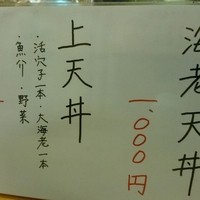 海老天丼
一、000円
上天丼
・活穴子一本・大海老一本
・魚介・野菜